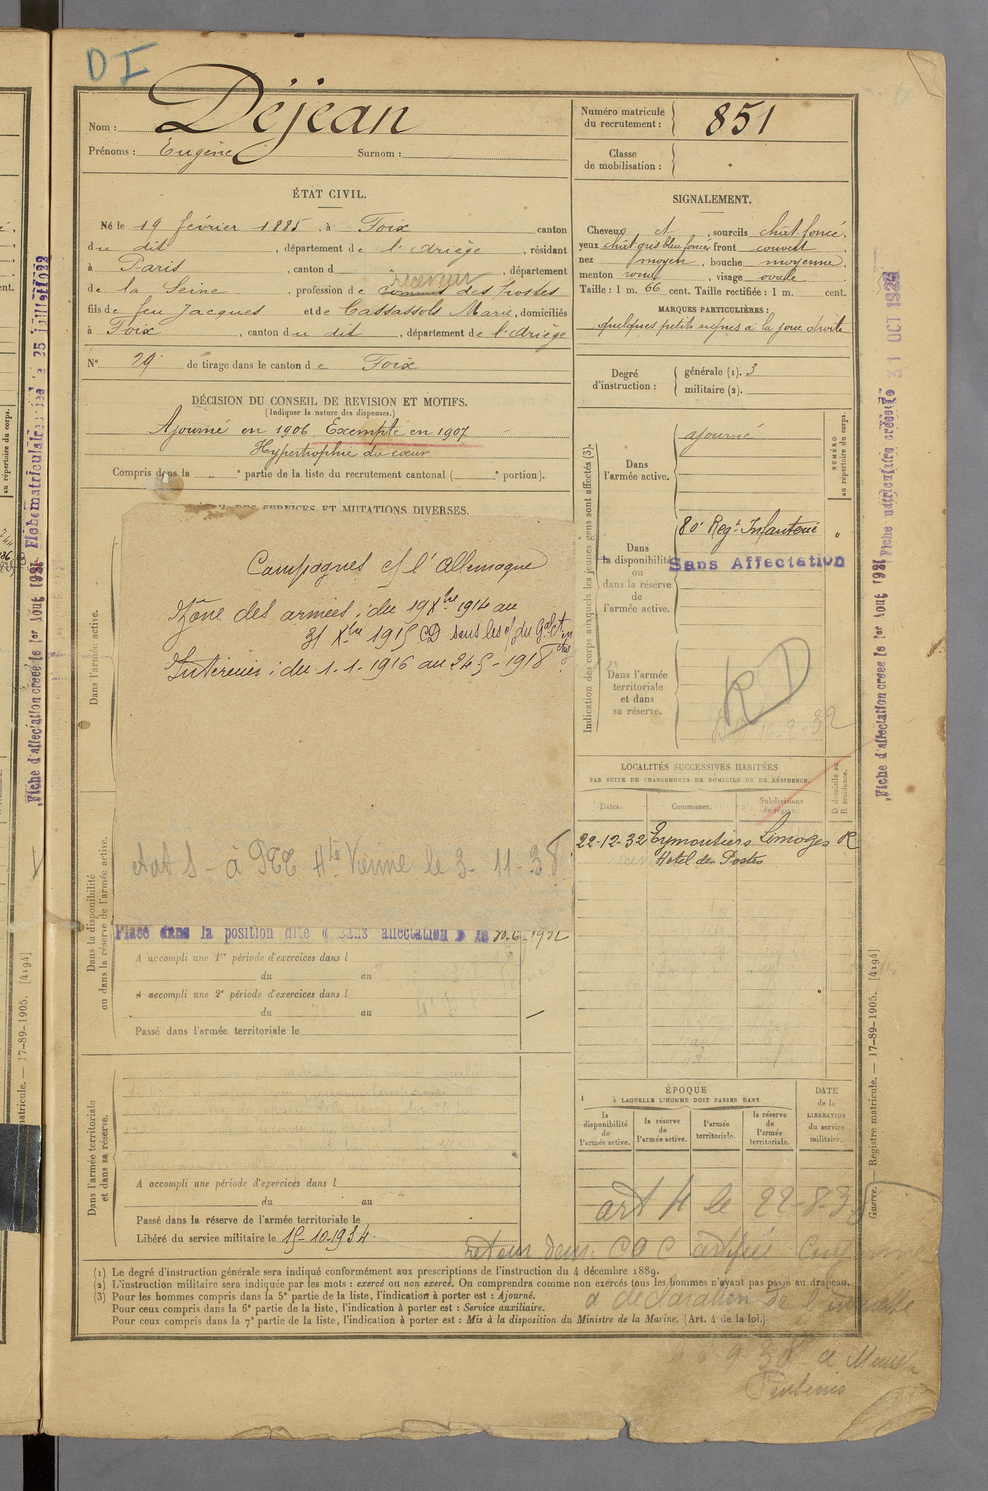 DI
Nom : Déjean
Prénoms : Eugène Surnom :
Numéro matricule du recrutement : 851
Classe de mobilisation :
ÉTAT CIVIL.
Né le 19 février 1885, à Foix canton
du dit, département de l'Ariège, résidant
à Paris, canton d " , département
de la Seine, profession de commis des Postes
receveur
fils de feu Jacques et de Cassassols Marie, domiciliés
à Foix, canton du dit, département de l'Ariège
N° 29 de tirage dans le canton de Foix
DÉCISION DU CONSEIL DE REVISION ET MOTIFS.
(Indiquer la nature des dispenses.)
Ajourné en 1906. Exempté en 1907
Hypertrophie du cœur
Compris dans la " e partie de la liste du recrutement cantonal ( e portion).
SERVICES ET MUTATIONS DIVERSES.
Campagnes c/ l'Allemagne
Zône des armées : du 19 Xbre 1914 au
31 Xbre 1915 CD sous les
Intérieur : du 1-1-1916 au 24 5-1918
à PTT Hte Vienne le 3-11-38
Placé dans la position dite « sans affectation » le 20-6-1932
A accompli une 1re période d'exercices dans l
du au
A accompli une 2e période d'exercices dans l
du au
Passé dans l'armée territoriale le
A accompli une période d'exercices dans l
du au
Passé dans la réserve de l'armée territoriale le
Libéré du service militaire le 15-10-1934
Dans l'armée active.
Dans la disponibilité ou dans la réserve de l'armée active.
Dans l'armée territoriale et dans sa réserve.
SIGNALEMENT.
Cheveux N, sourcils chat foncé,
yeux chat gris bleu foncé, front couvert,
nez moyen, bouche moyenne,
menton rond, visage ovale
Taille : 1 m. 66 cent. Taille rectifiée : 1 m. cent.
MARQUES PARTICULIÈRES :
quelques petits signes à la joue droite
Degré d'instruction : générale (1). 3
militaire (2).
Indication des corps auxquels les jeunes gens sont affectés (3).
NUMÉRO au répertoire du corps.
Dans l'armée active.
ajourné
80e Regt Infanterie "
Dans la disponibilité ou dans la réserve de l'armée active.
Sans Affectation
Dans l'armée territoriale et dans sa réserve.
RD
LOCALITÉS SUCCESSIVES HABITÉES
PAR SUITE DE CHANGEMENTS DE DOMICILE OU DE RÉSIDENCE.
Dates. Communes. Subdivisions de région. D domicile ou R résidence.
22-12-32 Eymoutiers Limoges R
Hotel des Postes
ÉPOQUE
À LAQUELLE L'HOMME DOIT PASSER DANS
la disponibilité de l'armée active.
la réserve de l'armée active.
l'armée territoriale.
la réserve de l'armée territoriale.
DATE de la LIBÉRATION du service militaire.
art 4 le 22-8-3
(1) Le degré d'instruction générale sera indiqué conformément aux prescriptions de l'instruction du 4 décembre 1889.
(2) L'instruction militaire sera indiquée par les mots : exercé ou non exercé. On comprendra comme non exercés tous les hommes n'ayant pas passé au drapeau.
(3) Pour les hommes compris dans la 5e partie de la liste, l'indication à porter est : Ajourné.
Pour ceux compris dans la 6e partie de la liste, l'indication à porter est : Service auxiliaire.
Pour ceux compris dans la 7e partie de la liste, l'indication à porter est : Mis à la disposition du Ministre de la Marine. (Art. 4 de la loi.)
Fiche d'affectation créée le 1er Aout 1921
Fiche matriculaire créée le 25 JUILLET 1922
Fiche d'affectation créée le 1er Aout 1921
Fiche matriculaire créée le 31 OCT
Guerre. — Registre matricule. — 17-89-1905. [4194]